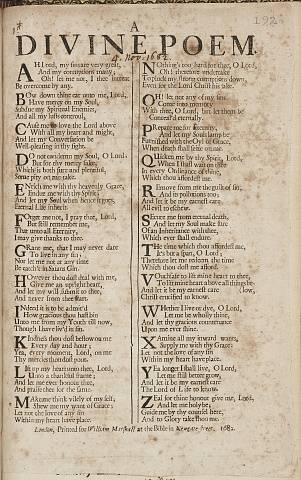 192
A
DIVINE POEM.
4. Nov. 1682.
AH Lord, my sins are very great,
And my corruptions many,
Oh! let me not, I thee intreat
Be overcome by any.
BOw down thine ear unto me, Lord,
Have mercy on my Soul,
Subdue my Spiritual Enemies,
And all my lusts controul,
CAuse me to love thee Lord above
With all my heart and might,
And let my Conversation be
Well-pleasing in thy sight.
DO not condemn my Soul, O Lord,
But for thy mercy sake,
Which is both sure and plentiful,
Some pity on me take.
ENrich me with thy heavenly Grace,
Endue me with thy Spirit;
And let my Soul when hence it goes,
Eternal Life inherit.
FOrget me not, I pray thee, Lord,
But still remember me,
That unto all Eternity,
I may give thanks to thee.
GRant me, that I may never dare
To live in any sin;
Nor let me not at any time
Be catch'd in Satans Gin.
HOwever thou dost deal with me,
Give me an upright heart,
And let my will submit to thee,
And never from thee start.
INdeed it is to be admir'd
How gracious thou hast bin
Unto me from my Youth till now,
Though I have liv'd in sin.
KIndness thou dost bestow on me
Every day and hour;
Yea, every moment, Lord, on me
Thy mercies thou dost pour.
LIft up my heart unto thee, Lord,
Unto a thankful frame;
And let me ever honour thee,
And praise thee for the same.
MAke me think vilely of my self,
Shew me my want of Grace;
Let not the love of any sin
Within my heart have place.
NOthing's too hard for thee, O Lord,
Oh! therefore undertake
To pluck my strong corruptions down,
Even for the Lord Christ his sake.
OH! let not any of my sins
Come into memory
With thee, O Lord, but let them be
Conceal'd eternally.
PRepare me for Eternity,
And let my Souls lamp be
Furnished with the Oyl of Grace,
When death shall seise on me.
QUicken me by thy Spirit, Lord,
When I shall wait on thee
In every Ordinance of thine,
Which thou affordest me.
REmove from me the guilt of sin,
And its pollutions too;
And let it be my earnest care
All evil to eschew.
SEcure me from eternal death,
And let my Soul make sure
Of an Inheritance with thee,
Which ever shall endure.
THe time which thou affordest me,
It's but a span, O Lord;
Therefore let me redeem the time
Which thou dost me afford.
VOuchsafe to lift mine heart to thee,
To lift mine heart above all things below,
And let it be my earnest care
Christ crucified to know.
WHether I live or dye, O Lord,
Let me be wholly thine,
And let thy gracious countenance
Upon me ever shine.
XAmine all my inward wants,
Supply me with thy Grace;
Let not the love of any sin
Within my heart have place.
YEa longer I shall live, O Lord,
Let me still better grow,
And let it be my earnest care
The Lord of Life to know.
ZEal for thine honour give me, Lord,
And let me holy be;
Guide me by thy counsel here,
And to Glory take thou me.
London, Printed for William Marshall at the Bible in Newgate-street, 1682.